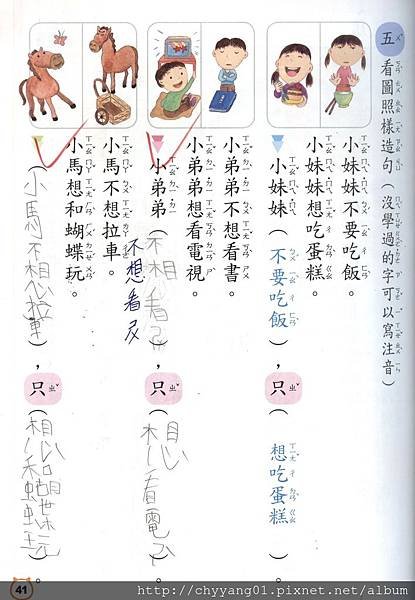 五 看圖照樣造句(沒學過的字可以寫注音)
小妹妹不要吃飯。
小妹妹想吃蛋糕。
小妹妹(不要吃飯),只(想吃蛋糕)。
小弟弟不想看書。
小弟弟想看電視。
小弟弟(不想看ㄕ),只(想看電ㄕ)。
不想看ㄕ
小馬不想拉車。
小馬想和蝴蝶玩。
(小馬不想拉車),只(想和蝴蝶玩)。
41
http://chyyang01.pixnet.net/album